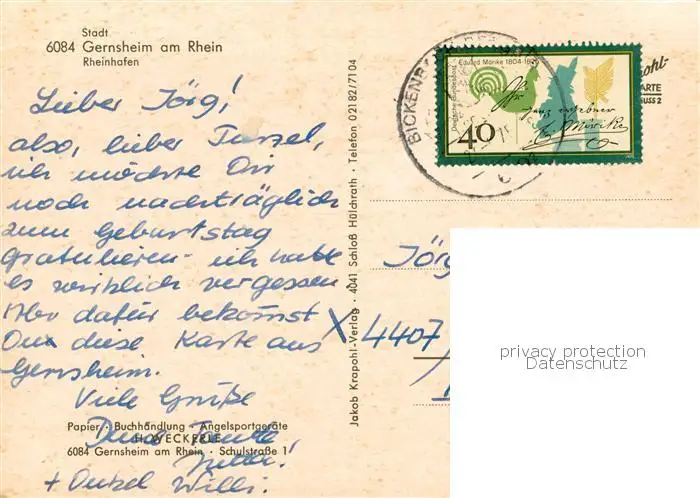 Stadt
6084 Gernsheim am Rhein
Rheinhafen
Lieber Jörg!
also, lieber
ich möchte Dir
noch nachträglich
zum Geburtstag
gratulieren - ich hatte
es wirklich vergessen
Aber dafür bekommst
Du diese Karte aus
Gernsheim.
Viele Grüße
Deine Tante
+ Onkel Willi.
Papier · Buchhandlung · Angelsportgeräte
H. WECKERLE
6084 Gernsheim am Rhein · Schulstraße 1
Jakob Krapohl-Verlag · 4041 Schloß Hülchrath · Telefon 02182/7104
BICKENBACH
Eduard Mörike 1804-1875
Deutsche Bundespost
40
E. Mörike
Jörg
X 4407
privacy protection
Datenschutz